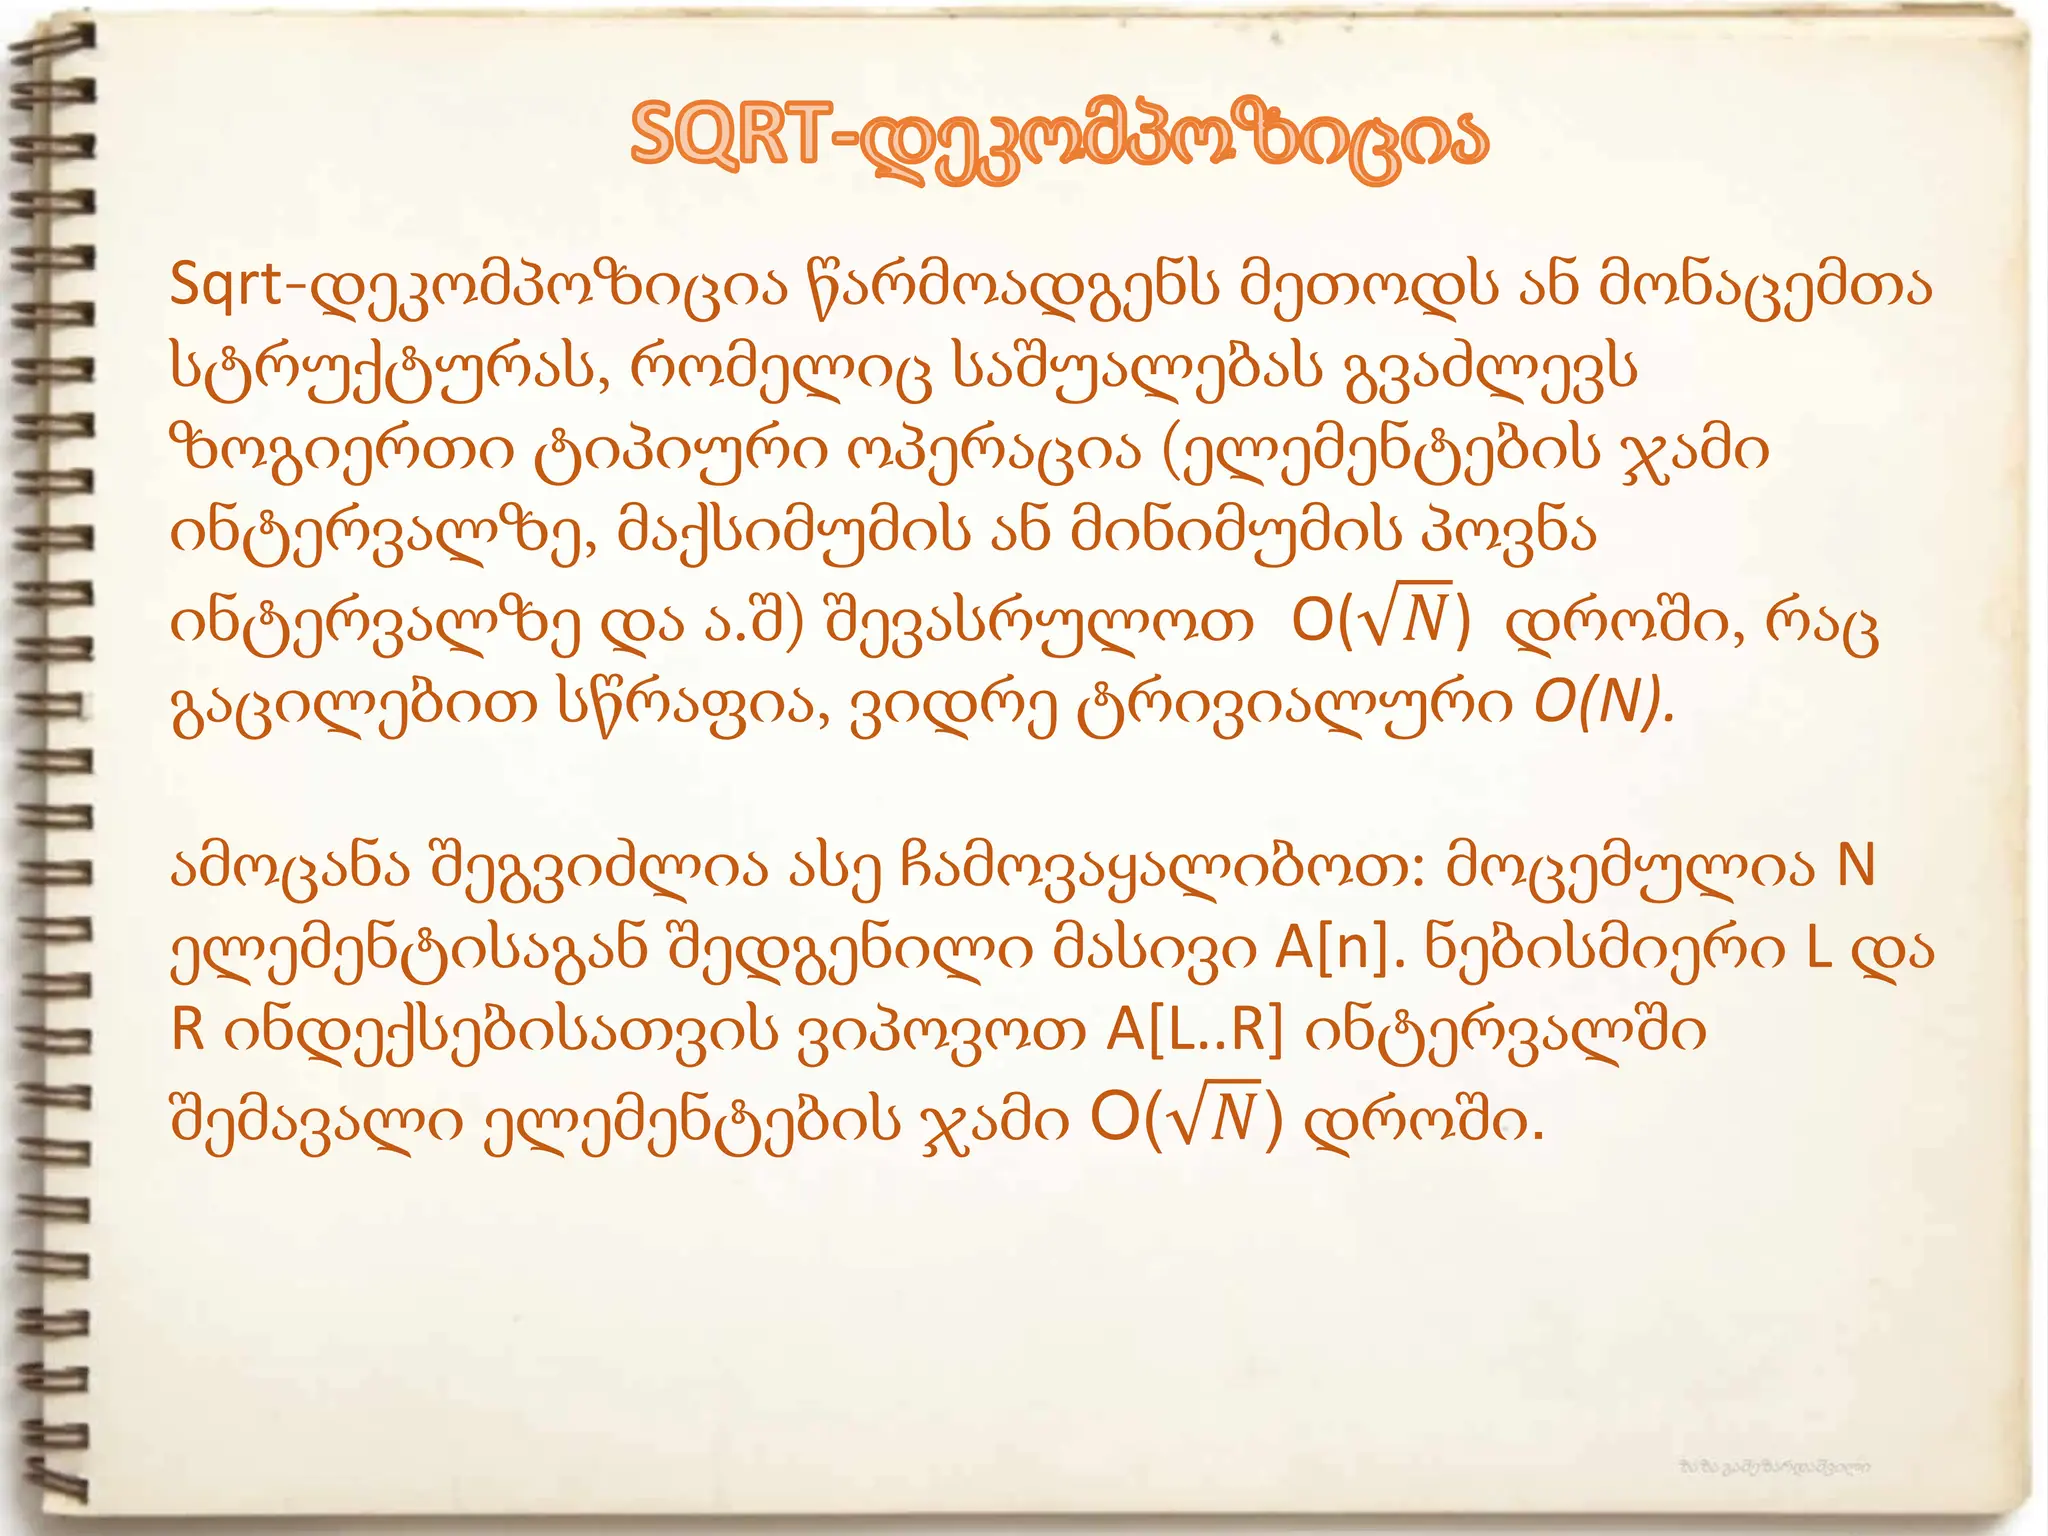 SQRT-დეკომპოზიცია
Sqrt-დეკომპოზიცია წარმოადგენს მეთოდს ან მონაცემთა
სტრუქტურას, რომელიც საშუალებას გვაძლევს
ზოგიერთი ტიპიური ოპერაცია (ელემენტების ჯამი
ინტერვალზე, მაქსიმუმის ან მინიმუმის პოვნა
ინტერვალზე და ა.შ) შევასრულოთ O(√N) დროში, რაც
გაცილებით სწრაფია, ვიდრე ტრივიალური O(N).
ამოცანა შეგვიძლია ასე ჩამოვაყალიბოთ: მოცემულია N
ელემენტისაგან შედგენილი მასივი A[n]. ნებისმიერი L და
R ინდექსებისათვის ვიპოვოთ A[L..R] ინტერვალში
შემავალი ელემენტების ჯამი O(√N) დროში.
ზაზა გამეზარდაშვილი